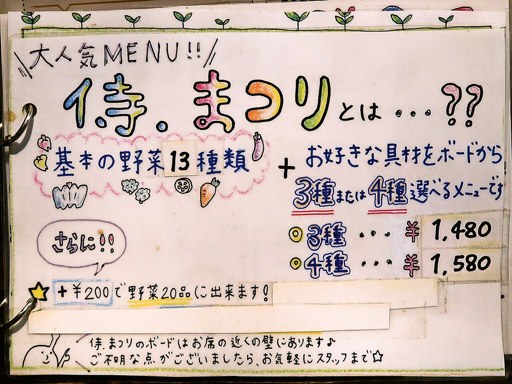 大人気MENU!!
侍.まつりとは...??
基本の野菜13種類
+
お好きな具材をボードから
3種または4種選べるメニューです
◎3種...¥1,480
◎4種...¥1,580
さらに!!
★+¥200で野菜20品に出来ます!
侍.まつりのボードはお席の近くの壁にあります♪
ご不明な点がございましたら、お気軽にスタッフまで☆